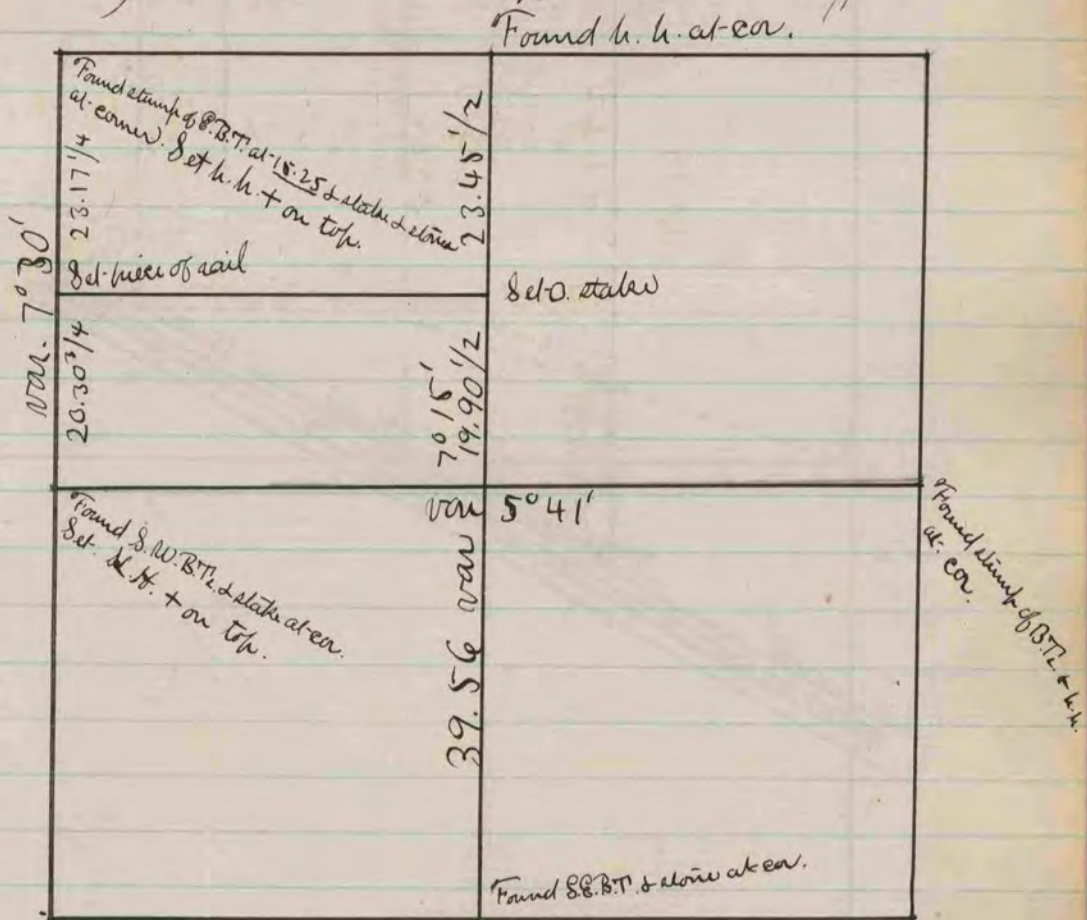 Found h. h. at cor. "
Found stump of E.B.T. at 15.25 & stake & stone
at corner. Set h.h. + on top.
23.17 1/4
23.45 1/2
var. 7° 30'
Set piece of rail
Set O. stake
20.30 3/4
7° 15'
19.90 1/2
var 5° 41'
Found S.W.B.T. & stake at cor.
Set. H.H. + on top.
Found stump of B.T. & h.h.
at cor.
39.56 var
Found S.E.B.T. & stone at cor.